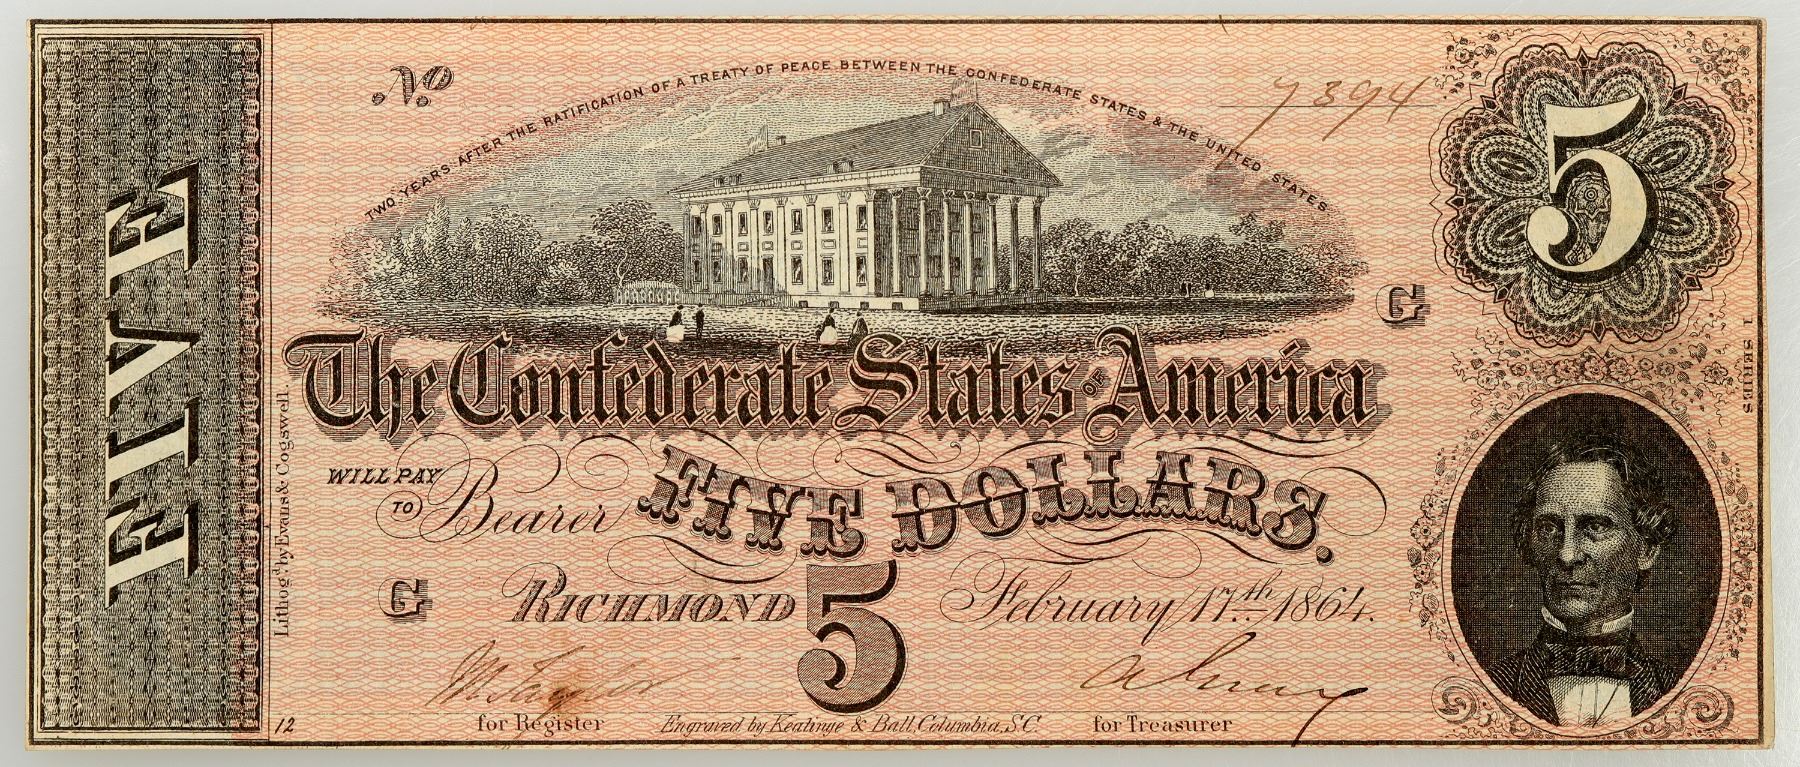 FIVE
No
7394
TWO YEARS AFTER THE RATIFICATION OF A TREATY OF PEACE BETWEEN THE CONFEDERATE STATES & THE UNITED STATES
5
G
1 SERIES
The Confederate States OF America
WILL PAY TO Bearer FIVE DOLLARS.
G
RICHMOND 5 February 17th 1864.
Taylor
for Register
Engraved by Keatinge & Ball, Columbia, S.C.
for Treasurer
12
Lithog'd by Evans & Cogswell.